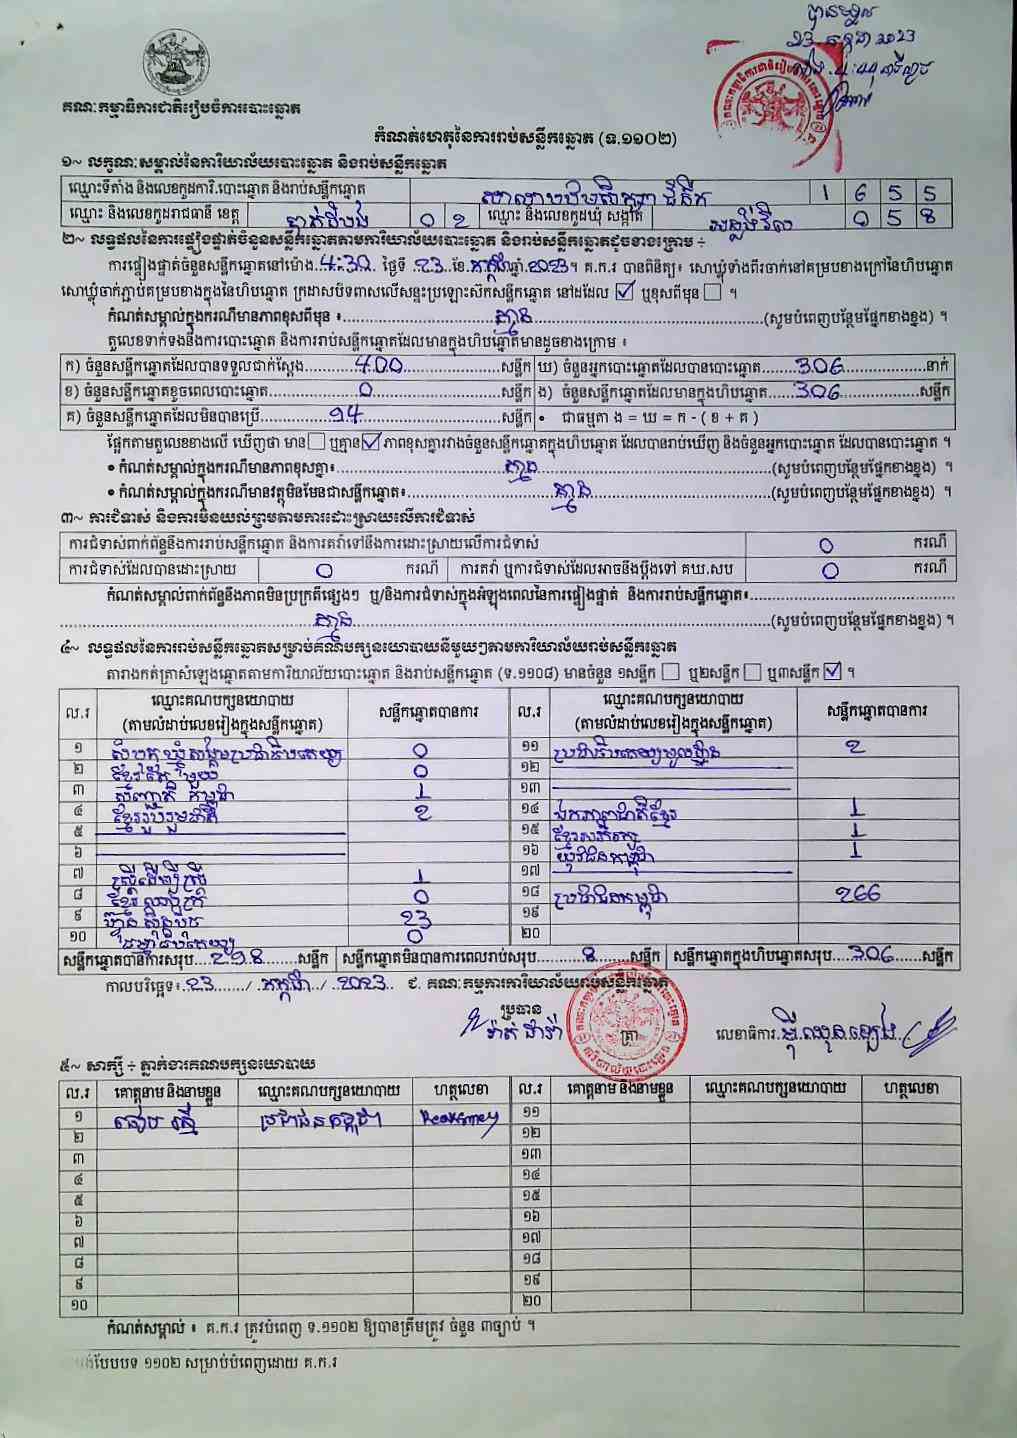 បានទទួល
23 កក្កដា 2023
ម៉ោង 4:44 នាទីល្ងាច
គណៈកម្មាធិការជាតិរៀបចំការបោះឆ្នោត
កំណត់ហេតុនៃការរាប់សន្លឹកឆ្នោត (ទ.១១០២)
១~ លក្ខណៈសម្គាល់នៃការិយាល័យបោះឆ្នោត និងរាប់សន្លឹកឆ្នោត
ឈ្មោះទីតាំង និងលេខកូដការិ.បោះឆ្នោត និងរាប់សន្លឹកឆ្នោត 1 6 5 5
ឈ្មោះ និងលេខកូដរាជធានី ខេត្ត បាត់ដំបង 0 2 ឈ្មោះ និងលេខកូដឃុំ សង្កាត់ 0 5 8
២~ លទ្ធផលនៃការផ្ទៀងផ្ទាត់ចំនួនសន្លឹកឆ្នោតតាមការិយាល័យបោះឆ្នោត និងរាប់សន្លឹកឆ្នោតដូចខាងក្រោម ÷
ការផ្ទៀងផ្ទាត់ចំនួនសន្លឹកឆ្នោតនៅម៉ោង..4:30. ថ្ងៃទី .23..ខែ.កក្កដា.ឆ្នាំ.2023។ គ.ក.រ បានពិនិត្យ៖ សោឃ្លុំទាំងពីរចាក់នៅគម្របខាងក្រៅនៃហិបឆ្នោត
សោឃ្លុំចាក់ភ្ជាប់គម្របខាងក្នុងនៃហិបឆ្នោត ក្រដាសបិទពាសលើសន្ទះប្រឡោះស៊កសន្លឹកឆ្នោត នៅដដែល ☑ ឬខុសពីមុន ☐ ។
កំណត់សម្គាល់ក្នុងករណីមានភាពខុសពីមុន ៖ គ្មាន (សូមបំពេញបន្ថែមផ្នែកខាងខ្នង) ។
តួលេខទាក់ទងនឹងការបោះឆ្នោត និងការរាប់សន្លឹកឆ្នោតដែលមានក្នុងហិបឆ្នោតមានដូចខាងក្រោម ៖
ក) ចំនួនសន្លឹកឆ្នោតដែលបានទទួលជាក់ស្តែង 400 សន្លឹក ឃ) ចំនួនអ្នកបោះឆ្នោតដែលបានបោះឆ្នោត 306 នាក់
ខ) ចំនួនសន្លឹកឆ្នោតខូចពេលបោះឆ្នោត 0 សន្លឹក ង) ចំនួនសន្លឹកឆ្នោតដែលមានក្នុងហិបឆ្នោត 306 សន្លឹក
គ) ចំនួនសន្លឹកឆ្នោតដែលមិនបានប្រើ 94 សន្លឹក • ជាធម្មតា ង = ឃ = ក - ( ខ + គ )
ផ្អែកតាមតួលេខខាងលើ ឃើញថា មាន ☐ ឬគ្មាន ☑ ភាពខុសគ្នារវាងចំនួនសន្លឹកឆ្នោតក្នុងហិបឆ្នោត ដែលបានរាប់ឃើញ និងចំនួនអ្នកបោះឆ្នោត ដែលបានបោះឆ្នោត ។
• កំណត់សម្គាល់ក្នុងករណីមានភាពខុសគ្នា៖ គ្មាន (សូមបំពេញបន្ថែមផ្នែកខាងខ្នង) ។
• កំណត់សម្គាល់ក្នុងករណីមានវត្ថុមិនមែនជាសន្លឹកឆ្នោត៖ គ្មាន (សូមបំពេញបន្ថែមផ្នែកខាងខ្នង) ។
៣~ ការជំទាស់ និងការមិនយល់ព្រមតាមការដោះស្រាយលើការជំទាស់
ការជំទាស់ពាក់ព័ន្ធនឹងការរាប់សន្លឹកឆ្នោត និងការតវ៉ាទៅនឹងការដោះស្រាយលើការជំទាស់ 0 ករណី
ការជំទាស់ដែលបានដោះស្រាយ 0 ករណី ការតវ៉ា ឬការជំទាស់ដែលអាចនឹងប្តឹងទៅ គឃ.សប 0 ករណី
កំណត់សម្គាល់ពាក់ព័ន្ធនឹងភាពមិនប្រក្រតីផ្សេងៗ ឬ/និងការជំទាស់ក្នុងអំឡុងពេលនៃការផ្ទៀងផ្ទាត់ និងការរាប់សន្លឹកឆ្នោត៖
គ្មាន (សូមបំពេញបន្ថែមផ្នែកខាងខ្នង) ។
៤~ លទ្ធផលនៃការរាប់សន្លឹកឆ្នោតសម្រាប់គណបក្សនយោបាយនីមួយៗតាមការិយាល័យរាប់សន្លឹកឆ្នោត
តារាងកត់ត្រាសំឡេងឆ្នោតតាមការិយាល័យបោះឆ្នោត និងរាប់សន្លឹកឆ្នោត (ទ.១១០៨) មានចំនួន ១សន្លឹក ☐ ឬ២សន្លឹក ☐ ឬ៣សន្លឹក ☑ ។
ល.រ ឈ្មោះគណបក្សនយោបាយ (តាមលំដាប់លេខរៀងក្នុងសន្លឹកឆ្នោត) សន្លឹកឆ្នោតបានការ ល.រ ឈ្មោះគណបក្សនយោបាយ (តាមលំដាប់លេខរៀងក្នុងសន្លឹកឆ្នោត) សន្លឹកឆ្នោតបានការ
១ សំបុកឃ្មុំសង្គមប្រជាធិបតេយ្យ 0 ១១ ប្រជាធិបតេយ្យមូលដ្ឋាន 2
២ ខ្មែរតែមួយ 0 ១២
៣ សញ្ជាតិកម្ពុជា 1 ១៣
៤ ខ្មែររួបរួមជាតិ 2 ១៤ ឯកភាពជាតិខ្មែរ 1
៥ ១៥ ខ្មែរអភិរក្ស 1
៦ ១៦ យុវជនកម្ពុជា 1
៧ ស្ត្រីដើម្បីស្ត្រី 1 ១៧
៨ ខ្មែរឈប់ក្រ 0 ១៨ ប្រជាជនកម្ពុជា 266
៩ ហ៊្វុនស៊ិនប៉ិច 23 ១៩
១០ ធម្មាធិបតេយ្យ 0 ២០
សន្លឹកឆ្នោតបានការសរុប 298 សន្លឹក សន្លឹកឆ្នោតមិនបានការពេលរាប់សរុប 8 សន្លឹក សន្លឹកឆ្នោតក្នុងហិបឆ្នោតសរុប 306 សន្លឹក
កាលបរិច្ឆេទ៖ 23 / កក្កដា / 2023 ៩. គណៈកម្មការការិយាល័យរាប់សន្លឹកឆ្នោត
ប្រធាន ត្រា លេខាធិការ
៥~ សាក្សី ÷ ភ្នាក់ងារគណបក្សនយោបាយ
ល.រ គោត្តនាម និងនាមខ្លួន ឈ្មោះគណបក្សនយោបាយ ហត្ថលេខា ល.រ គោត្តនាម និងនាមខ្លួន ឈ្មោះគណបក្សនយោបាយ ហត្ថលេខា
១ ប្រជាជនកម្ពុជា ១១
២ ១២
៣ ១៣
៤ ១៤
៥ ១៥
៦ ១៦
៧ ១៧
៨ ១៨
៩ ១៩
១០ ២០
កំណត់សម្គាល់ ៖ គ.ក.រ ត្រូវបំពេញ ទ.១១០២ ឱ្យបានត្រឹមត្រូវ ចំនួន ៣ច្បាប់ ។
បែបបទ ១១០២ សម្រាប់បំពេញដោយ គ.ក.រ